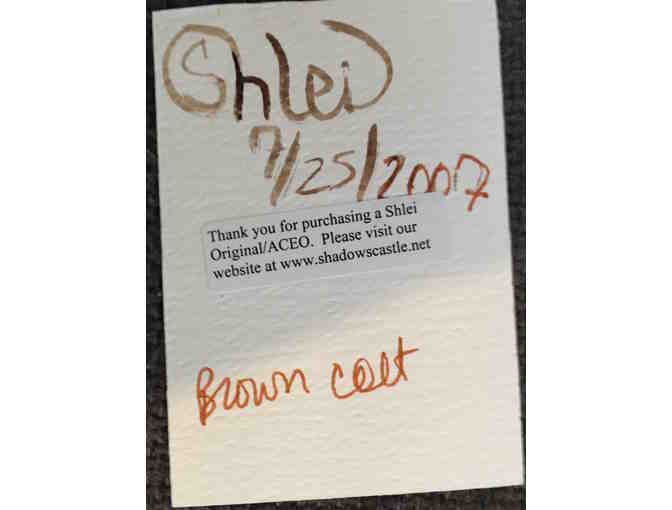 Shlei
7/25/2007
Thank you for purchasing a Shlei
Original/ACEO.  Please visit our
website at www.shadowscastle.net
Brown colt